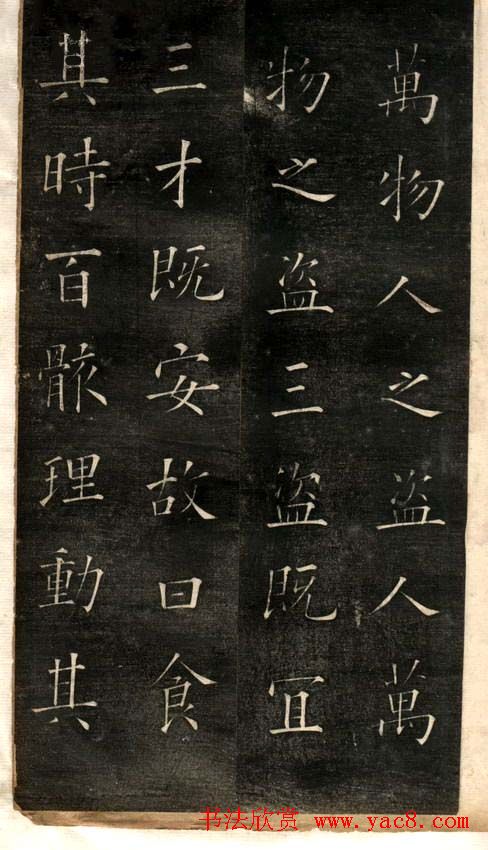 萬物人之盗人萬
物之盗三盗既冝
三才既安故曰食
其時百骸理動其
书法欣赏 www.yac8.com